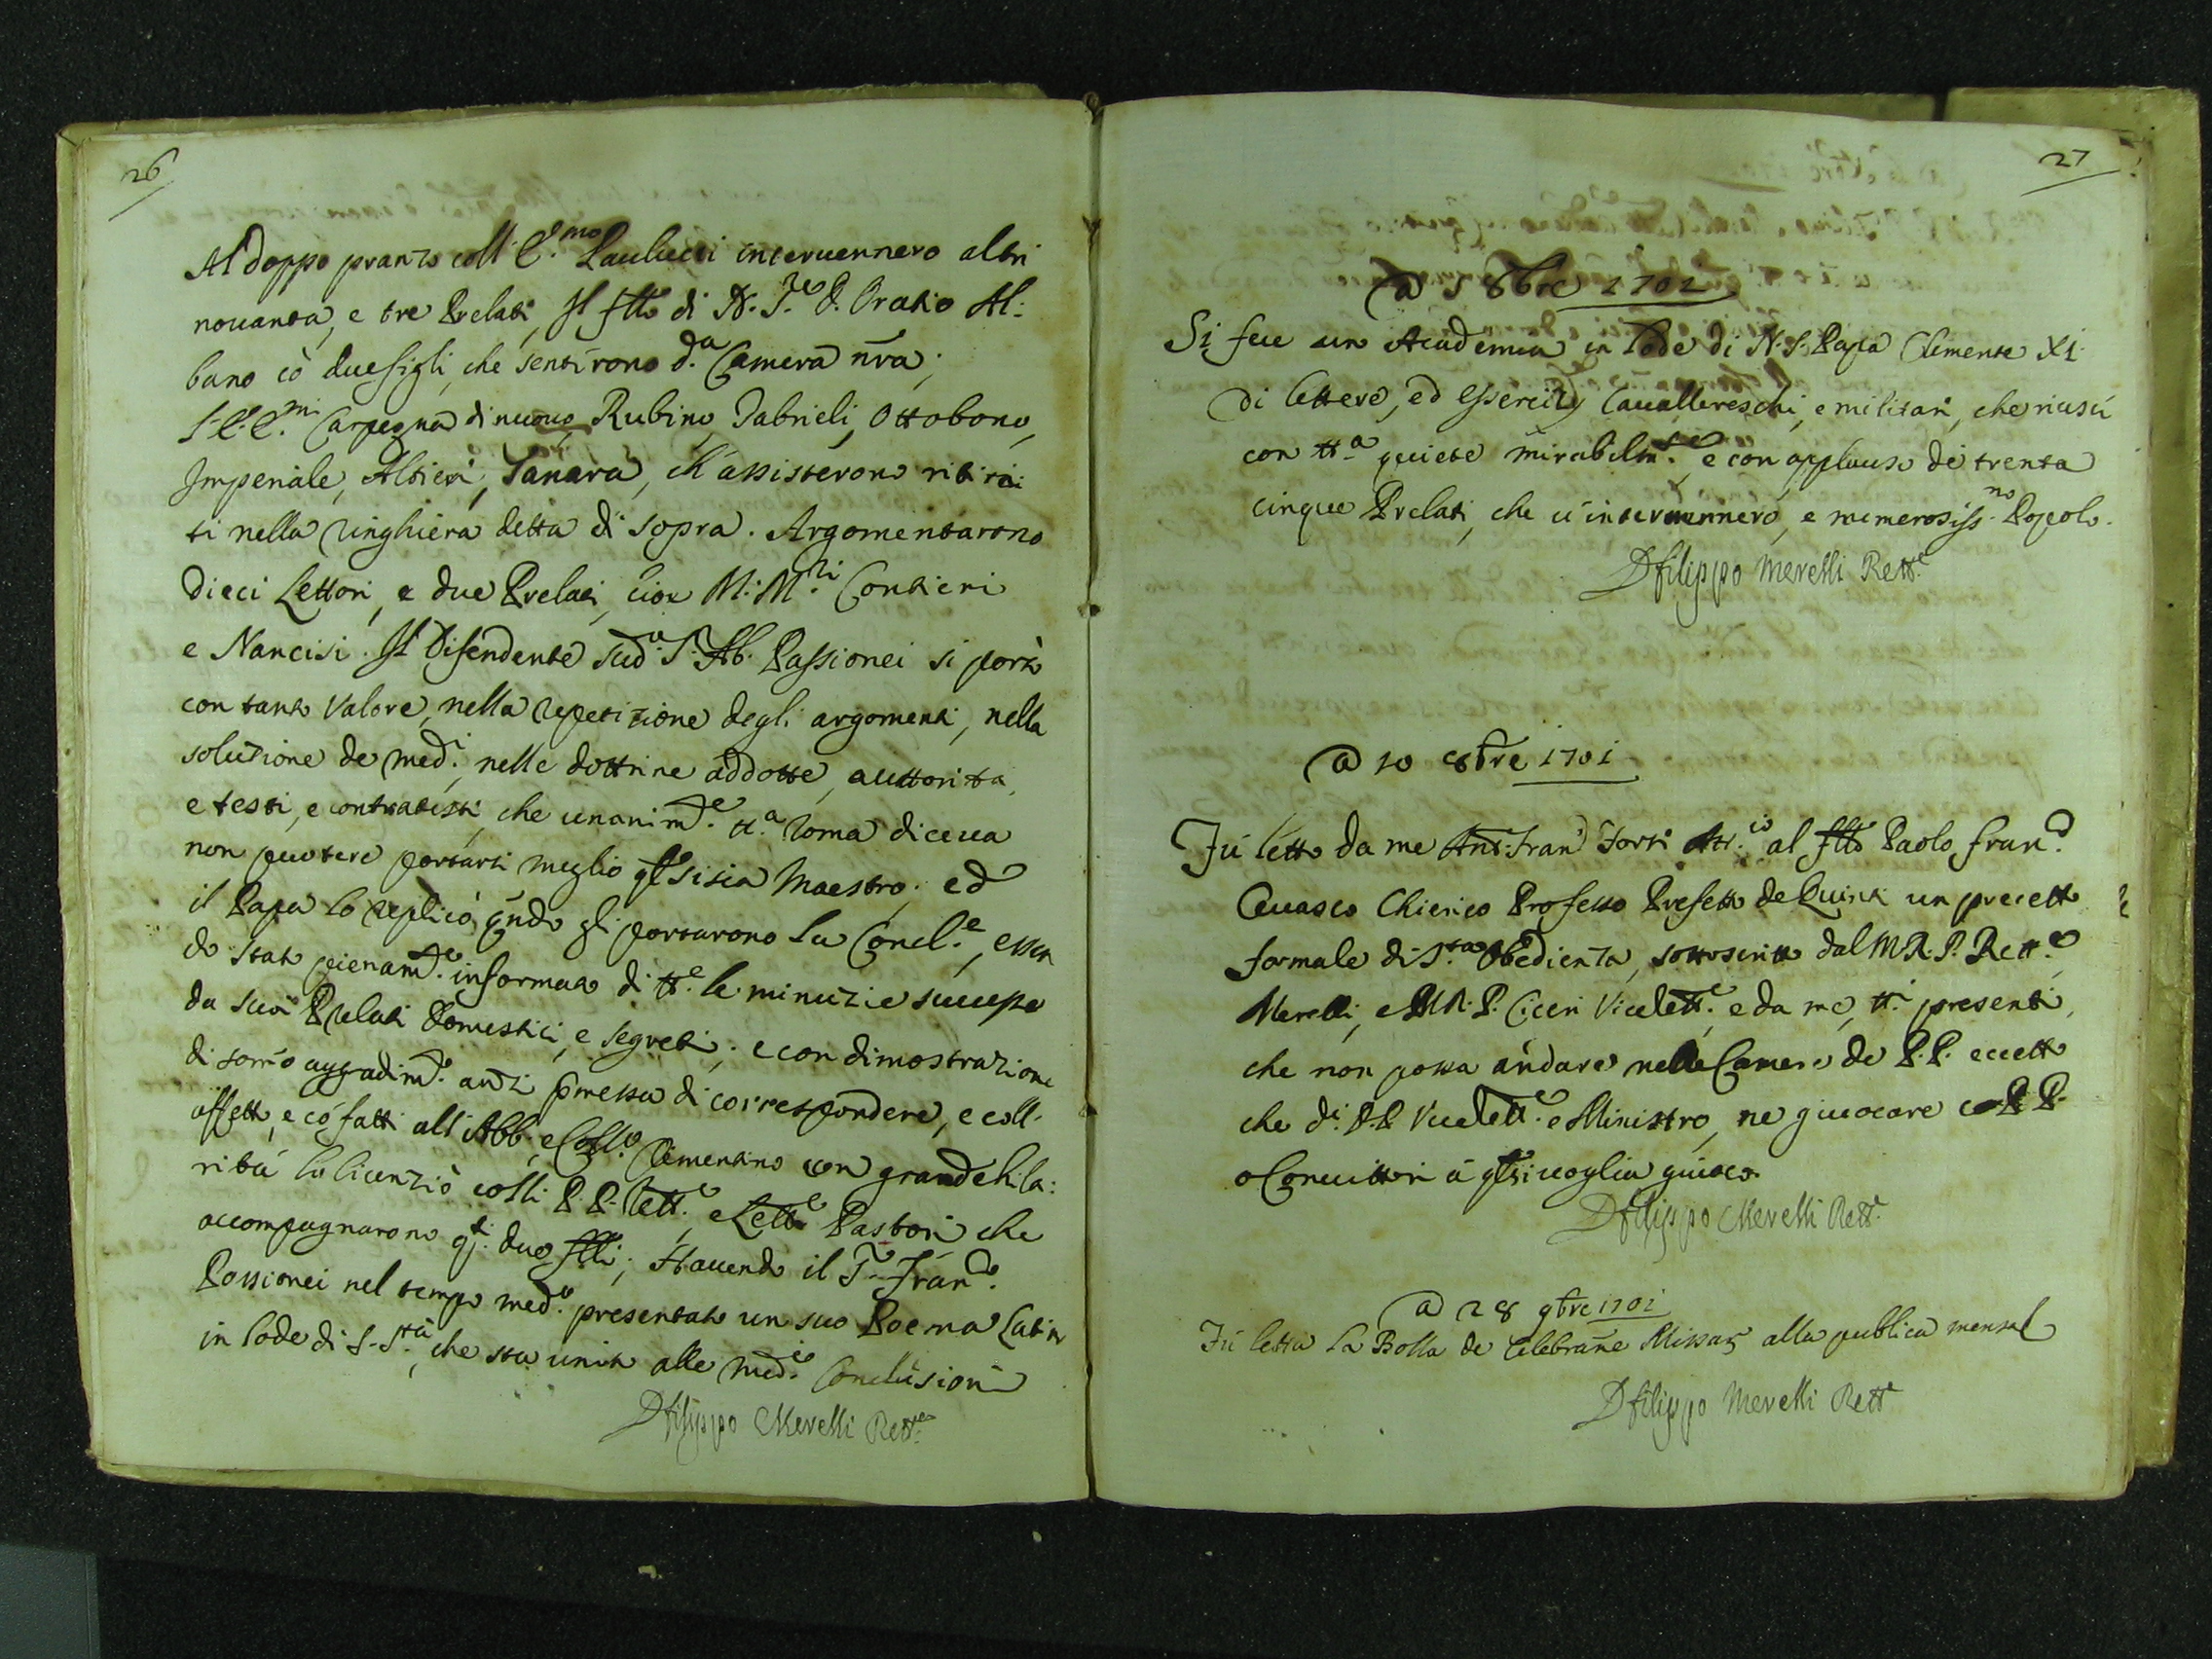 26
Al doppo pranzo coll' E.mo Paulucci interuennero altri
nouanta, e tre Prelati, Il ftto di N. S.re D. Oratio Al:
bano cõ due figli, che sentirono d.a Camera nr̃a;
S.E.E.mi Carpegna di nuouo, Rubino, Gabrieli, Ottobono,
Imperiale, Altieri, Tanara, ch' assisterono ritira
ti nella ringhiera detta di sopra. Argomentarono
dieci Lettori, e due Prelati, cioe M: M.ri Contieri
e Narcisi. Il Difendente sud.o S.r Ab. Passionei si portò
con tanto valore, nella repetizione degli argomenti, nella
soluzione de med.i, nelle dottrine addotte, auttorita,
e testi, e contratesti, che unanim.te tt.a Roma diceua
non puotere portarsi meglio qlsisia Maestro; ed
il Papa lo replicò, qñdo gli portarono la Concl.e, essen
do stato pienam.te informato di tt.e le minuzie successe
da suoi Prelati Domestici, e segreti; e con dimostrazione
di som̃o aggradim.to anzi p̃messa di correspondere, e coll'
affetto, e cõ fatti all' Abb. e Coll.o Clementino con grande hila:
rità lo licenziò colli P.P. Rett.e, e Lett.e Pastori che
accompagnarono q.ti due ftlli; Hauendo il S.r Fran.co
Passionei nel tempo med.o presentato un suo Poema Latino
in lode di S. S.tà, che sta unito alle med.e Conclusioni
D filippo Merelli Rett.e
27
A 5 8bre 1701
Si fece un Academia in lode di N. S. Papa Clemente XI.
di lettere, ed essercizÿ Cauallereschi, e militari, che riuscì
con tt.a quiete mirabilm.te, e con applauso di trenta
cinque Prelati, che u'interuennero, e numerosiss.mo Popolo.
D filippo Merelli Rett.e
A 10 8bre 1701
Fù letto da me Ant. Fran.co Forti Att.io al ftto Paolo Fran.co
Auasco Chierico Professo Prefetto de Quinti un precetto
formale di S.ta Obedienza, sottoscritto dal M.R.P. Rett.e
Merelli, e M.R.P. Ciceri Vicelett.e, e da me, tt.i presenti,
che non possa andare nelle Camere de P.P. eccetto
che d.i P.P. Vicelett.e e Ministro, ne giuocare co P.P.
o Conuittori a qlsiuoglia giuoco.
D filippo Merelli Rett.e
A 28 9bre 1701
Fù letta la Bolla de Celebrañe Missar3 alla publica mensa
D filippo Merelli Rett.e